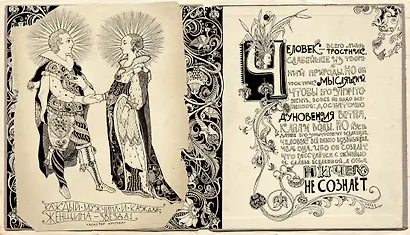 КАЖДЫЙ МУЖЧИНА И КАЖДАЯ
ЖЕНЩИНА – ЗВЕЗДА!
ЧЕЛОВЕК – ВСЕГО ЛИШЬ
ТРОСТНИК,
СЛАБЕЙШЕЕ ИЗ ТВОРЕ
НИЙ ПРИРОДЫ, НО ОН
ТРОСТНИК МЫСЛЯЩИЙ.
ЧТОБЫ ЕГО УНИЧТО
ЖИТЬ, ВОВСЕ НЕ НАДО ВСЕ
ДОСТАТОЧНО
ДУНОВЕНИЯ ВЕТРА,
КАПЛИ ВОДЫ. НО ПУСТЬ
ЧЕЛОВЕК ВСЁ РАВНО ВОЗВЫШЕННЕЕ,
ЧЕМ ОНА, ИБО ОН СОЗНАЁТ,
ЧТО РАССТАЁТСЯ С ЖИЗНЬЮ
НИЧЕГО
НЕ СОЗНАЁТ.